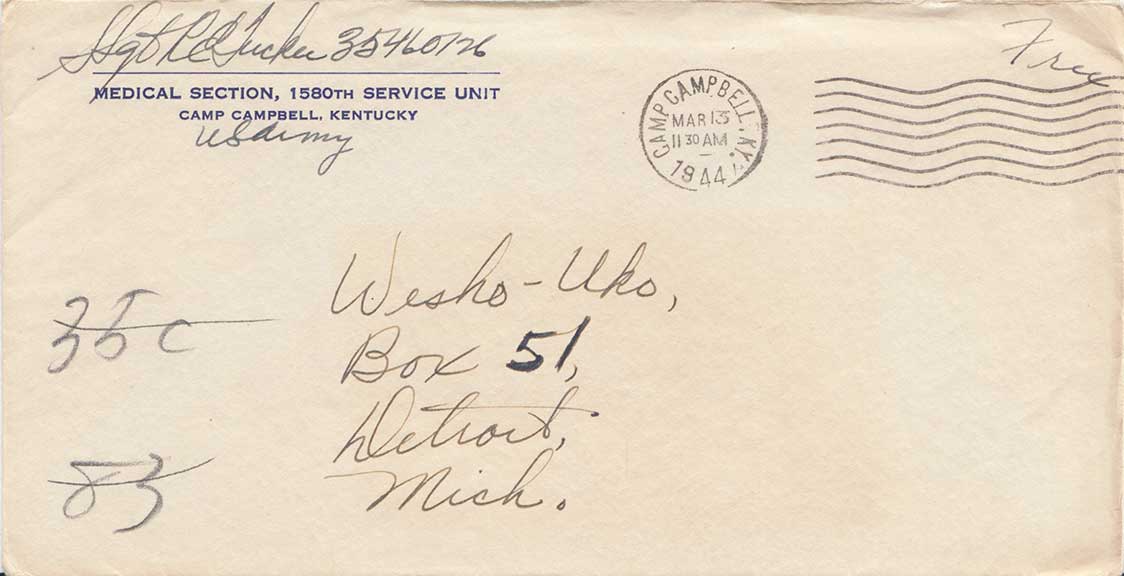 SSgt R C Tucker 35460126
MEDICAL SECTION, 1580TH SERVICE UNIT
CAMP CAMPBELL, KENTUCKY
US Army
CAMP CAMPBELL, KY.
MAR 13
11 30 AM
1944
Free
Wesho-Uko,
Box 51,
Detroit,
Mich.
35c
83